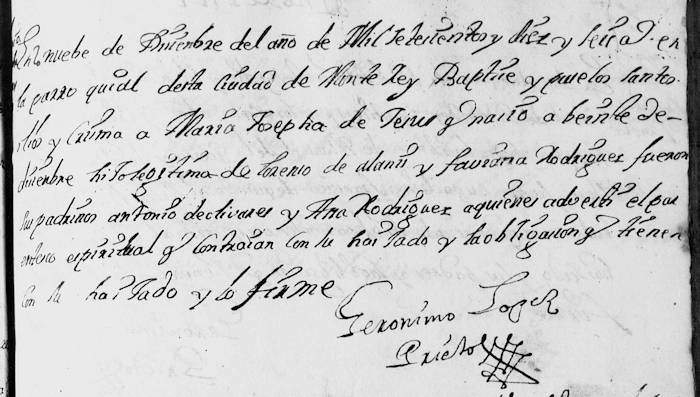 En nuebe de Diziembre del año de Mil Setesientos y diez y seis a. en
la parroquial desta Ciudad de Monte Rey Baptise y puse los santos
olios y Crisma a Maria Josepha de Jesus q nacio a beinte de
diciembre hija legitima de lorenso de alanis y faviana Rodriguez fueron
sus padrinos antonio de olivares y Ana Rodriguez a quienes adverti el par
entesco espiritual q contraian con su haijado y la obligasion q tienen
con su haijado y lo firme
Geronimo Lopez
Prieto